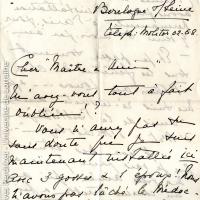 Boulogne s/Seine
Téléph: Molitor 02-58
Cher "Maître & Ami"
M'avez vous tout à fait
oublié !?
Vous n'avez pas su
sans doute que je suis
maintenant installée ici
avec 3 gosses & 1 époux! Nous
n'avons pas lâché le Médoc.